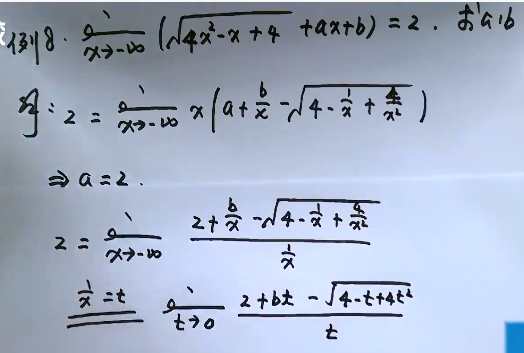 例8. lim x→-∞ (√(4x²-x+4) +ax+b) = 2. 求a,b
解: 2 = lim x→-∞ x(a+b/x-√(4-1/x+4/x²))
⇒ a=2.
2 = lim x→-∞ (2+b/x-√(4-1/x+4/x²))/(1/x)
1/x=t lim t→0 (2+bt-√(4-t+4t²))/t